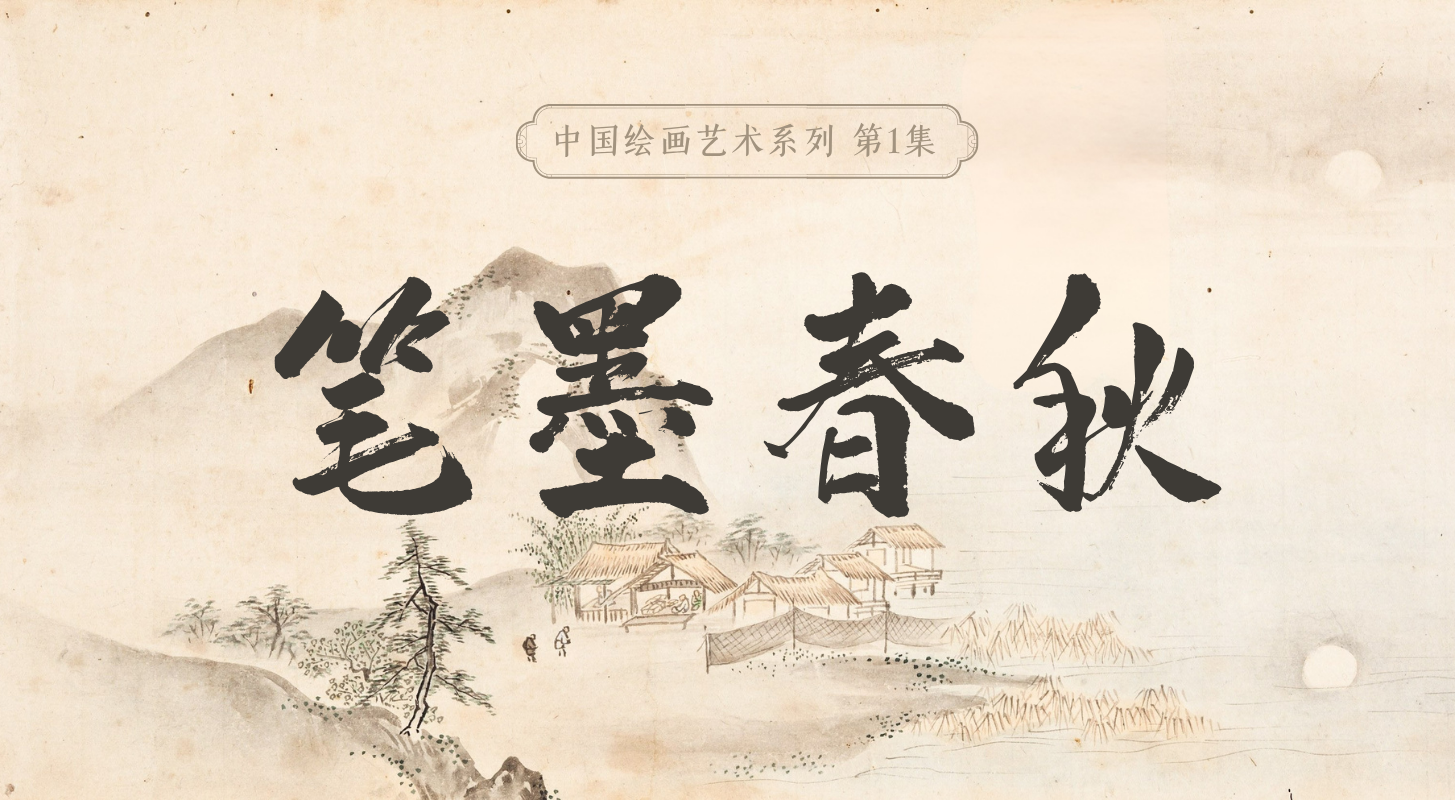 中国绘画艺术系列 第1集
笔墨春秋